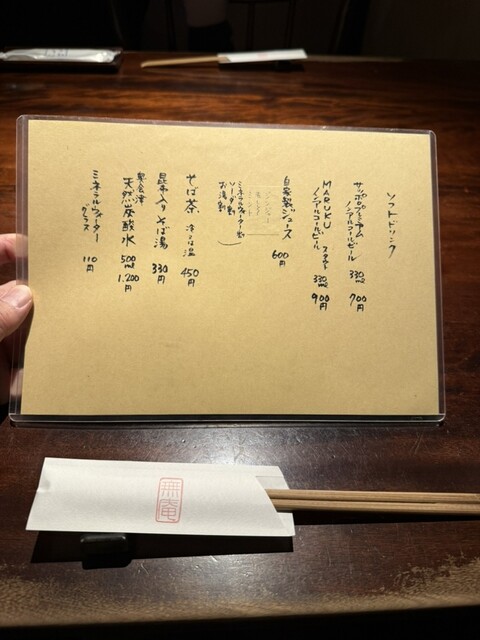 ソフトドリンク
サッポロプレミアム
ノンアルコールビール 330ml 700円
MARUKU
ノンアルコールビール スタウト 330ml 900円
自家製ジュース 600円
ミネラルウォーター割
ソーダ割
お湯割
そば茶 冷or温 450円
昆布入りそば湯 330円
奥会津
天然炭酸水 500ml 1.200円
ミネラルウォーター
グラス 110円
無庵